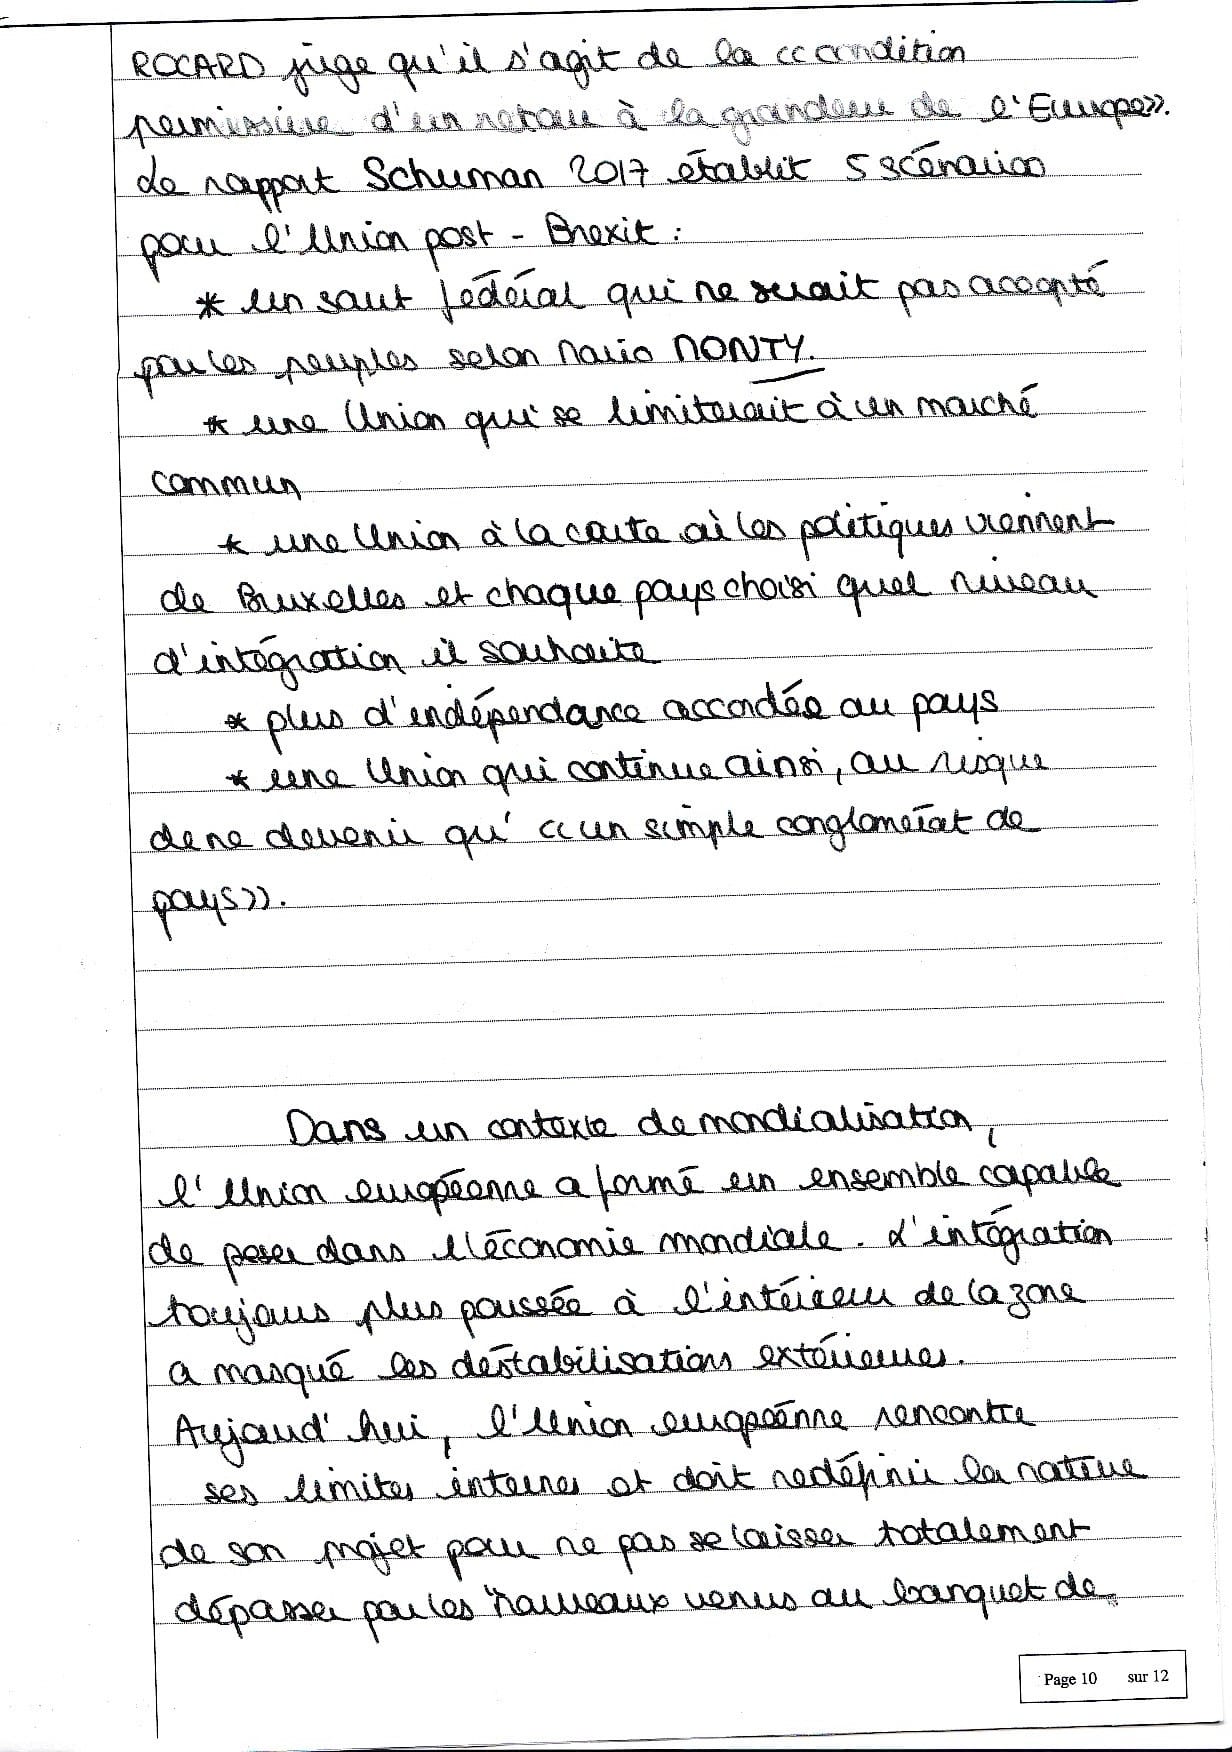 ROCARD juge qu'il s'agit de la « condition
permissive d'un retour à la grandeur de l'Europe».
Le rapport Schuman 2017 établit 5 scénarios
pour l'Union post-Brexit :
* un saut fédéral qui ne serait pas accepté
par les peuples selon Mario MONTY.
* une Union qui se limiterait à un marché
commun
* une Union à la carte où les politiques viennent
de Bruxelles et chaque pays choisi quel niveau
d'intégration il souhaite
* plus d'indépendance accordée au pays
* une Union qui continue ainsi, au risque
de ne devenir qu' « un simple conglomérat de
pays».
Dans un contexte de mondialisation,
l'Union européenne a formé un ensemble capable
de peser dans l'économie mondiale. L'intégration
toujours plus poussée à l'intérieur de la zone
a masqué les déstabilisations extérieures.
Aujourd'hui, l'Union européenne rencontre
ses limites internes et doit redéfinir la nature
de son projet pour ne pas se laisser totalement
dépasser par les "nouveaux venus au banquet de
Page 10 sur 12